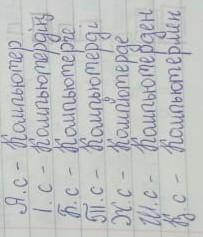 А.с - Компьютер
І.с - Компьютердің
Б.с - Компьютерге
Т.с - Компьютерді
Ж.с - Компьютерде
Ш.с - Компьютерден
К.с - Компьютермен